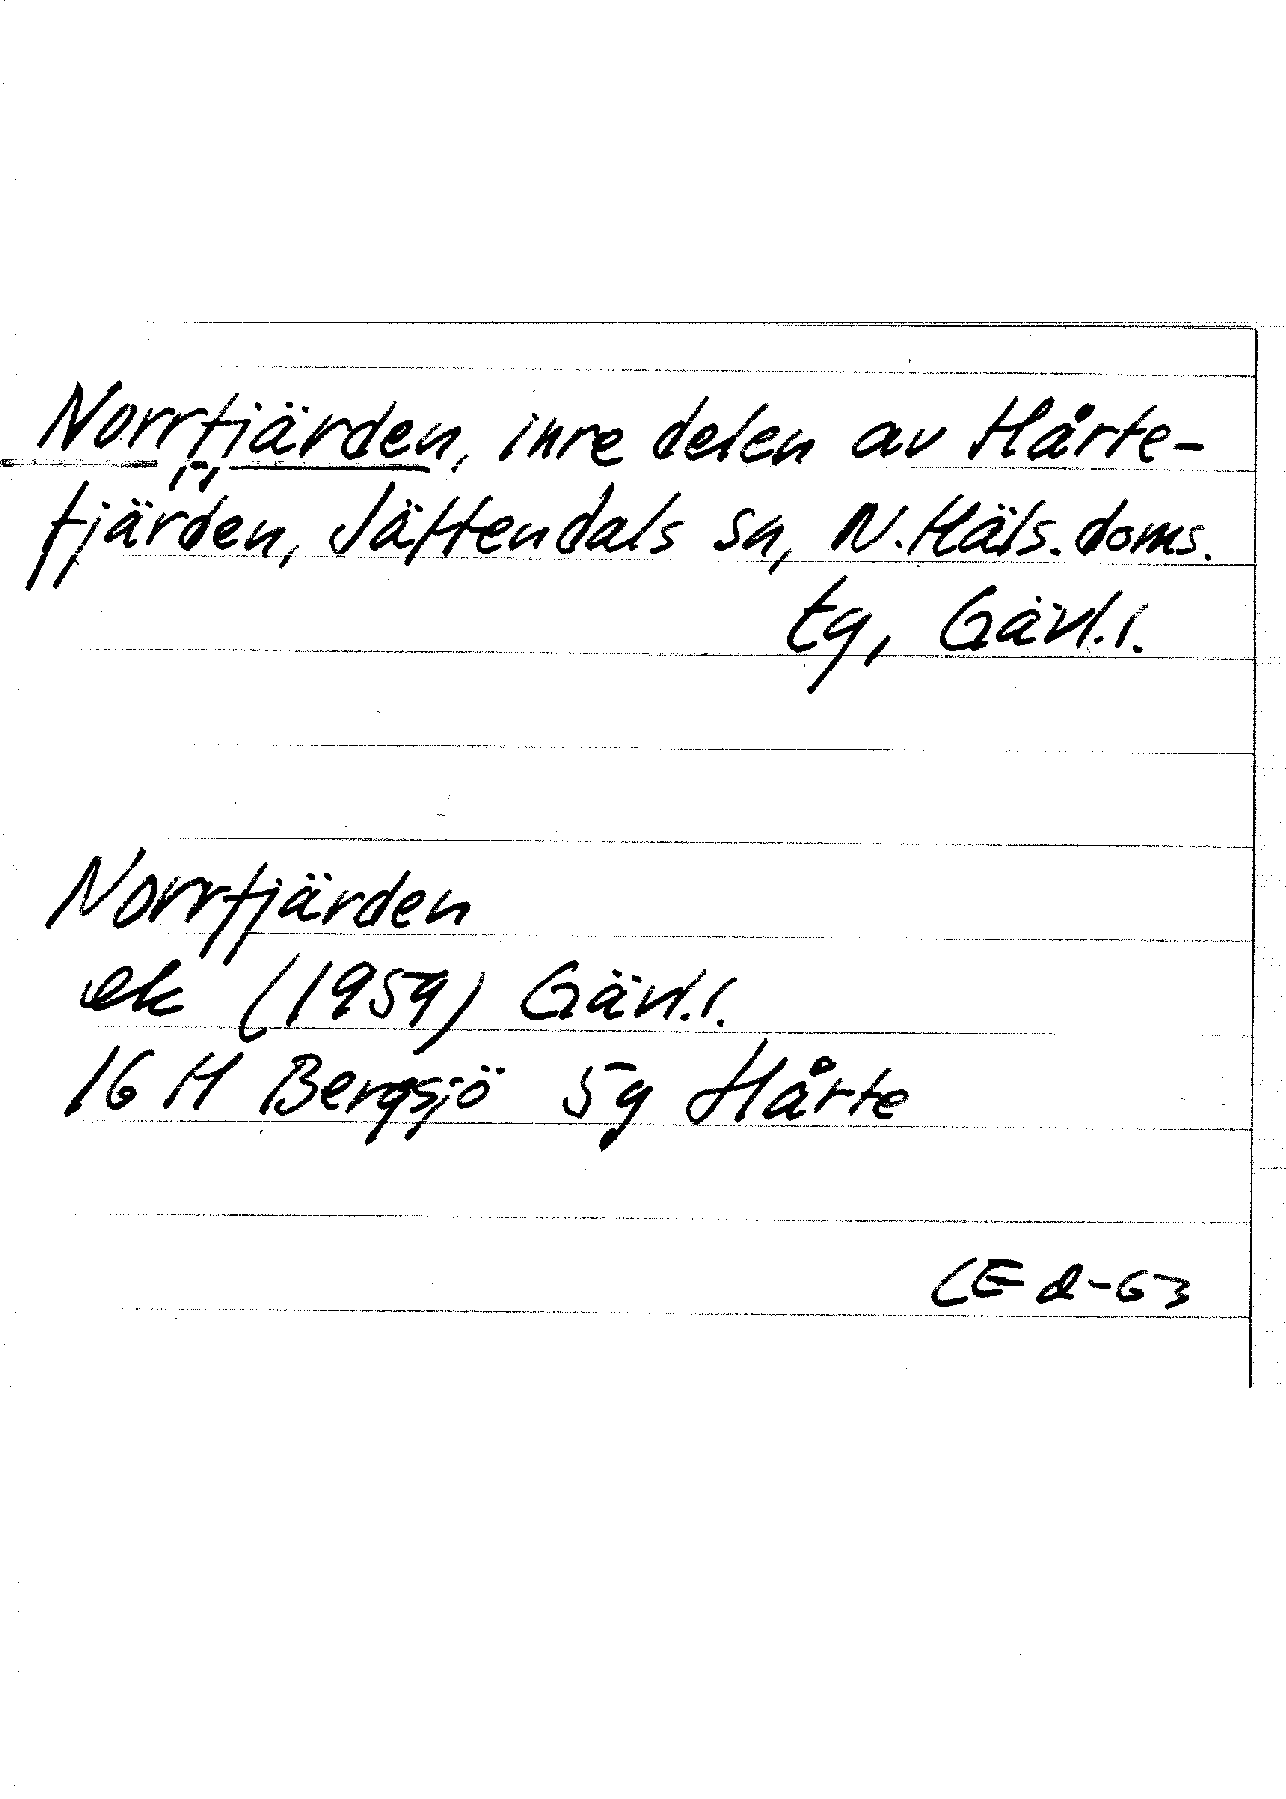 Norrfjärden, inre delen av Hårte-
fjärden, Jättendals sn, N. Häls. doms.
tg, Gävl.l.
Norrfjärden
ek (1959) Gävl.l.
16 H Bergsjö 5g Hårte
CE d-63